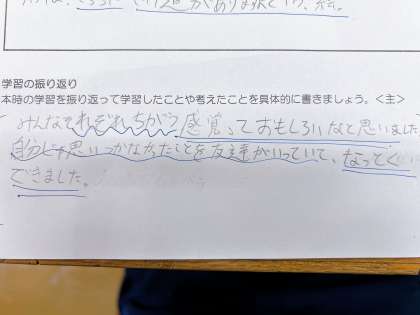 学習の振り返り
本時の学習を振り返って学習したことや考えたことを具体的に書きましょう。<主>
みんなそれぞれちがう感覚っておもしろいなと思いました
自分じゃ思いつかなかったことを友達がいっていて、なってくい
できました。